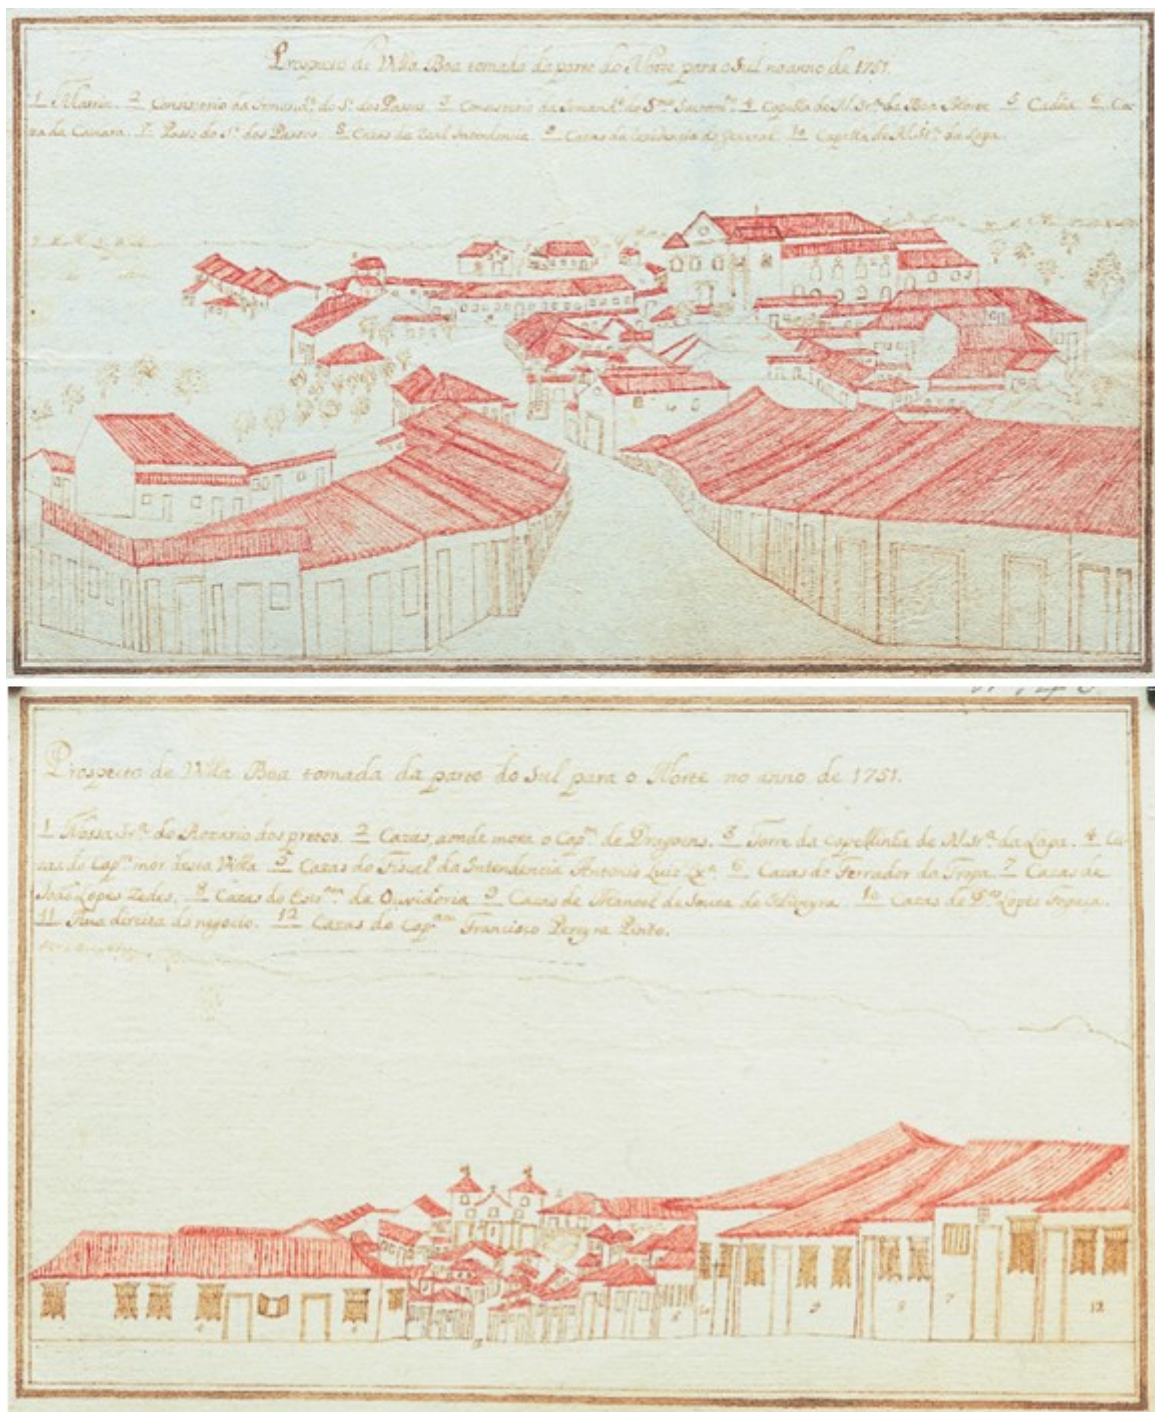 Prospecto de Villa Boa tomada da parte do Norte para o Sul no anno de 1751.
1 Matriz. 2 Consistorio da do Sr. dos Passos. 3 Consistorio da do 4 Capella de N. Srª. da Boa Morte 5 Cadêa 6 Ca-
za da Camara. 7 Passo do Sr. dos Passos. 8 Cazas da Real Intendencia 9 Cazas da Rezidencia do General. 10 Capella de N. Srª. da Lapa.
Prospecto de Villa Boa tomada da parte do Sul para o Norte no anno de 1751.
1 Nossa Srª. do Rozario dos pretos. 2 Cazas, aonde mora o Capᵐ. de Dragoens. 3 Torre da Capellinha de N. Srª. da Lapa. 4 Ca-
zas do Capᵐ. mor desta Villa 5 Cazas do Fiscal da Intendencia Antonio Luiz Lxª. 6 Cazas do Ferrador da Tropa. 7 Cazas de
João Lopes Zedes. 8 Cazas do da Ouvidoria 9 Cazas de Manoel de Souza de 10 Cazas de Lopes
11 Rua direita do negocio. 12 Cazas do Capᵃᵐ Francisco Pereyra Pinto.
9 8 7 12